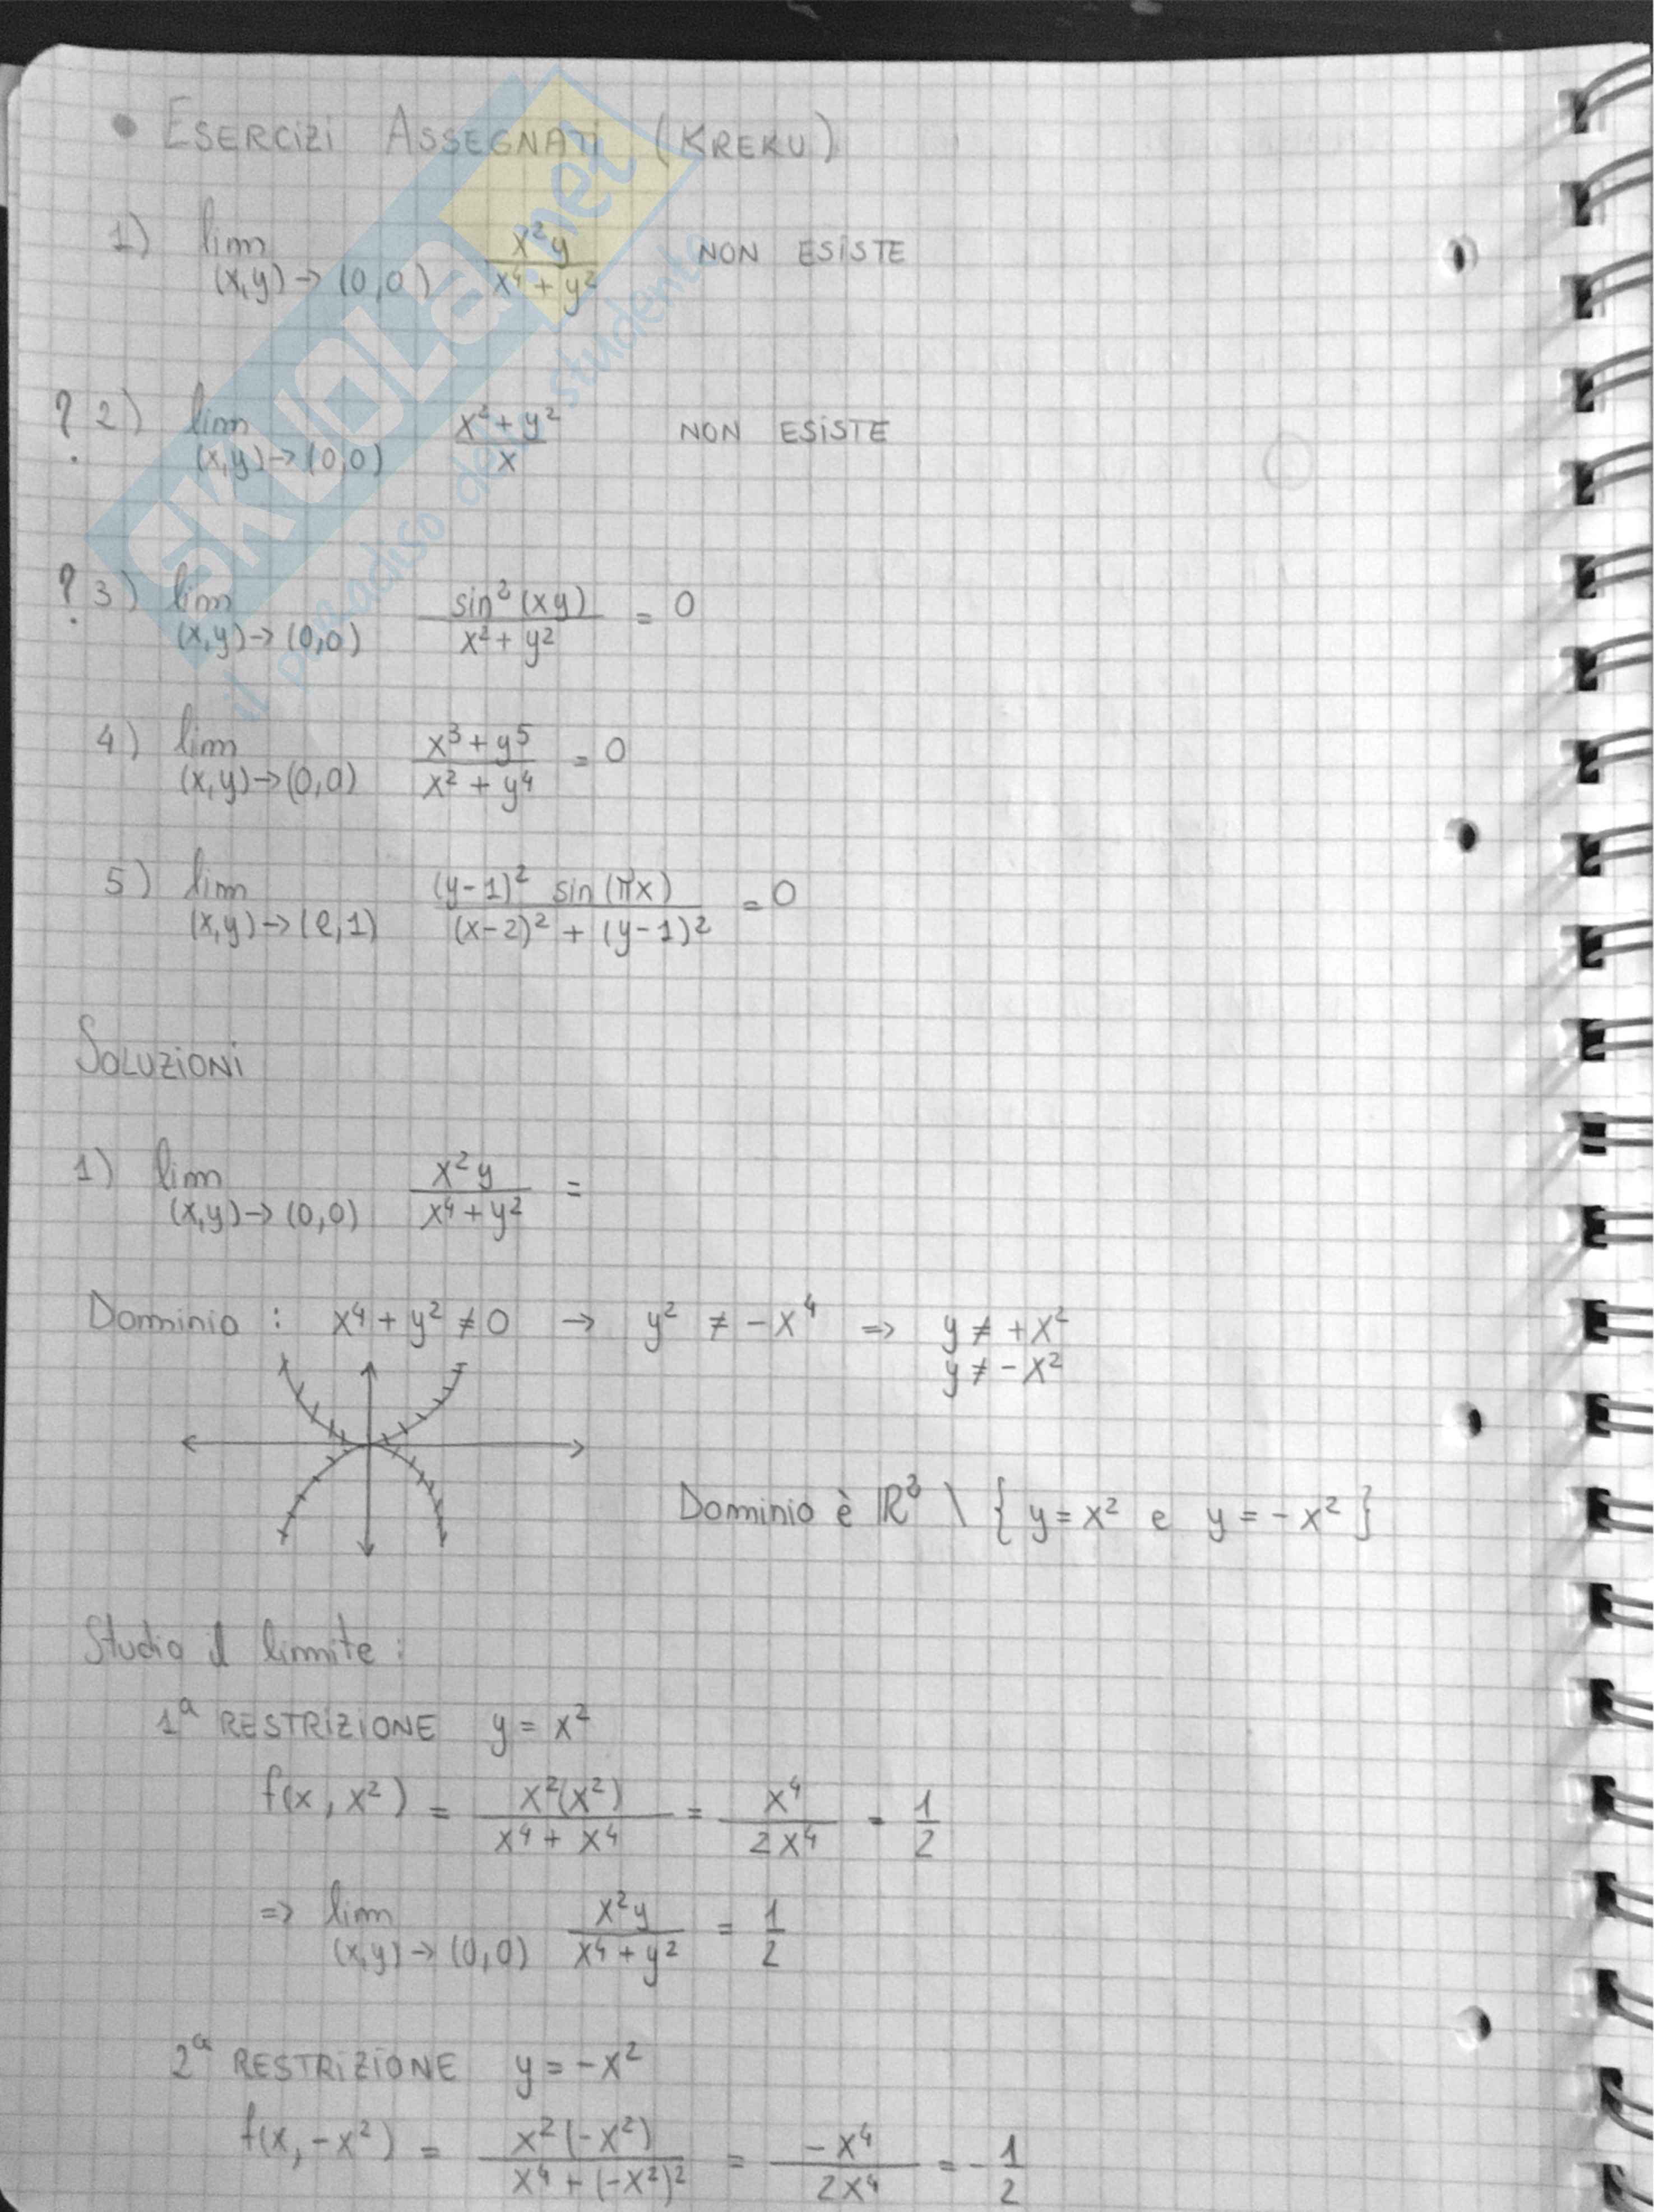 • ESERCIZI ASSEGNATI (KREKU)
1) lim (x,y)→(0,0) x²y / x⁴+y² NON ESISTE
? 2) lim (x,y)→(0,0) x²+y² / x NON ESISTE
? 3) lim (x,y)→(0,0) sin²(xy) / x²+y² = 0
4) lim (x,y)→(0,0) x³+y⁵ / x²+y⁴ = 0
5) lim (x,y)→(2,1) (y-1)² sin(πx) / (x-2)²+(y-1)² = 0
SOLUZIONI
1) lim (x,y)→(0,0) x²y / x⁴+y² =
Dominio : x⁴+y²≠0 → y² ≠ -x⁴ ⇒ y ≠ +x²
y ≠ -x²
Dominio è ℝ² \ { y=x² e y=-x² }
Studio il limite :
1ª RESTRIZIONE y = x²
f(x, x²) = x²(x²) / x⁴+x⁴ = x⁴ / 2x⁴ = 1/2
⇒ lim (x,y)→(0,0) x²y / x⁴+y² = 1/2
2ª RESTRIZIONE y = -x²
f(x,-x²) = x²(-x²) / x⁴+(-x²)² = -x⁴ / 2x⁴ = -1/2
SKUOLA.net
il paradiso dello studente